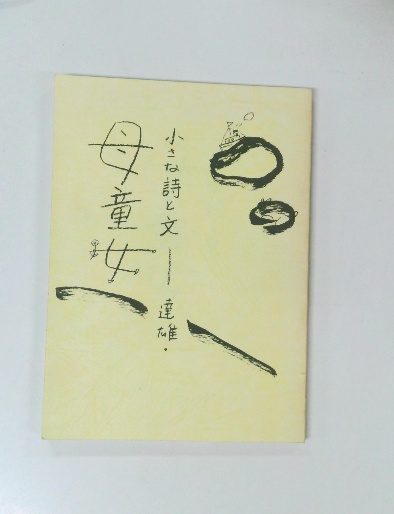 小さな詩と文――達雄・
母童女